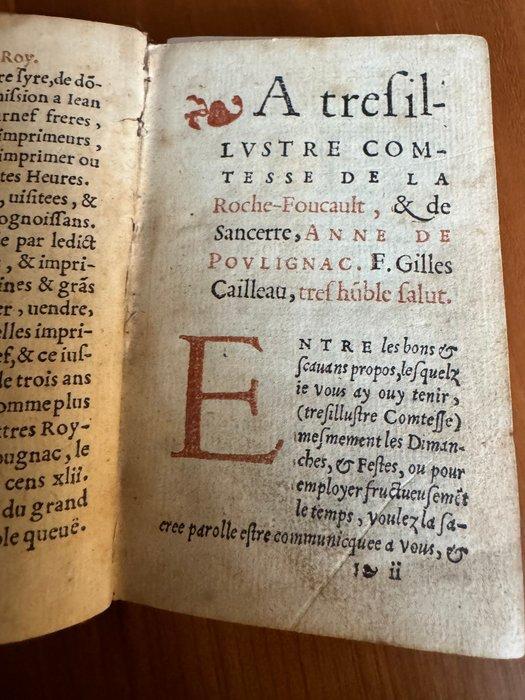 Roy.
re ſyre, de dõ-
miſsion a Iean
arnef freres,
imprimeurs,
imprimer ou
tes Heures.
, uiſitees, &
ognoiſſans.
e par ledict
, & impri-
ines & grãs
er, uendre,
elles impri-
ef, & ce iuſ-
de trois ans
omme plus
ttres Roy-
ougnac, le
cens xlii.
du grand
ple queuë.
A treſil-
LVSTRE COM-
TESSE DE LA
Roche-Foucault, & de
Sancerre, ANNE DE
POVLIGNAC. F. Gilles
Cailleau, treſ hũble ſalut.
ENTRE les bons &
ſcauans propos, leſquelz
ie vous ay ouy tenir,
(treſilluſtre Comteſſe)
meſmement les Diman-
ches, & Feſtes, ou pour
employer fructueuſemẽt
le temps, voulez la ſa-
cree parolle eſtre communicquee a vous, &
ii